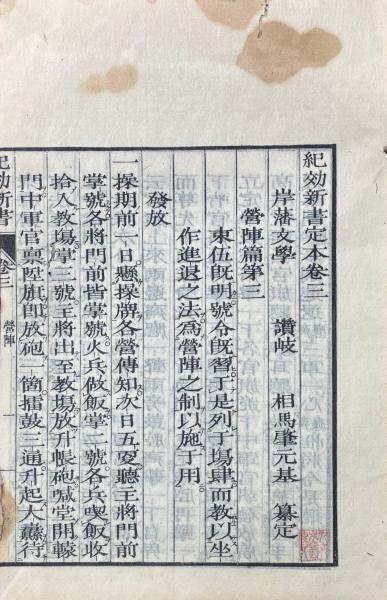 紀効新書定本卷三
岸藩文學　讃岐　相馬肇元基　纂定
營陣篇第三
東伍既明號令既習于是列于塲肆而教以坐
作進退之法爲營陣之制以施于用
發放
一操期前一日懸操牌各營傳知次日五更聽主將門前
掌號各將門前皆掌號火兵做飯掌二號各兵喫飯收
拾入教塲掌三號主將出至教塲放升帳砲喊堂開轅
門中軍官禀陞旗即放砲一箇擂鼓三通升起大纛待
紀効新書
卷三
營陣
一